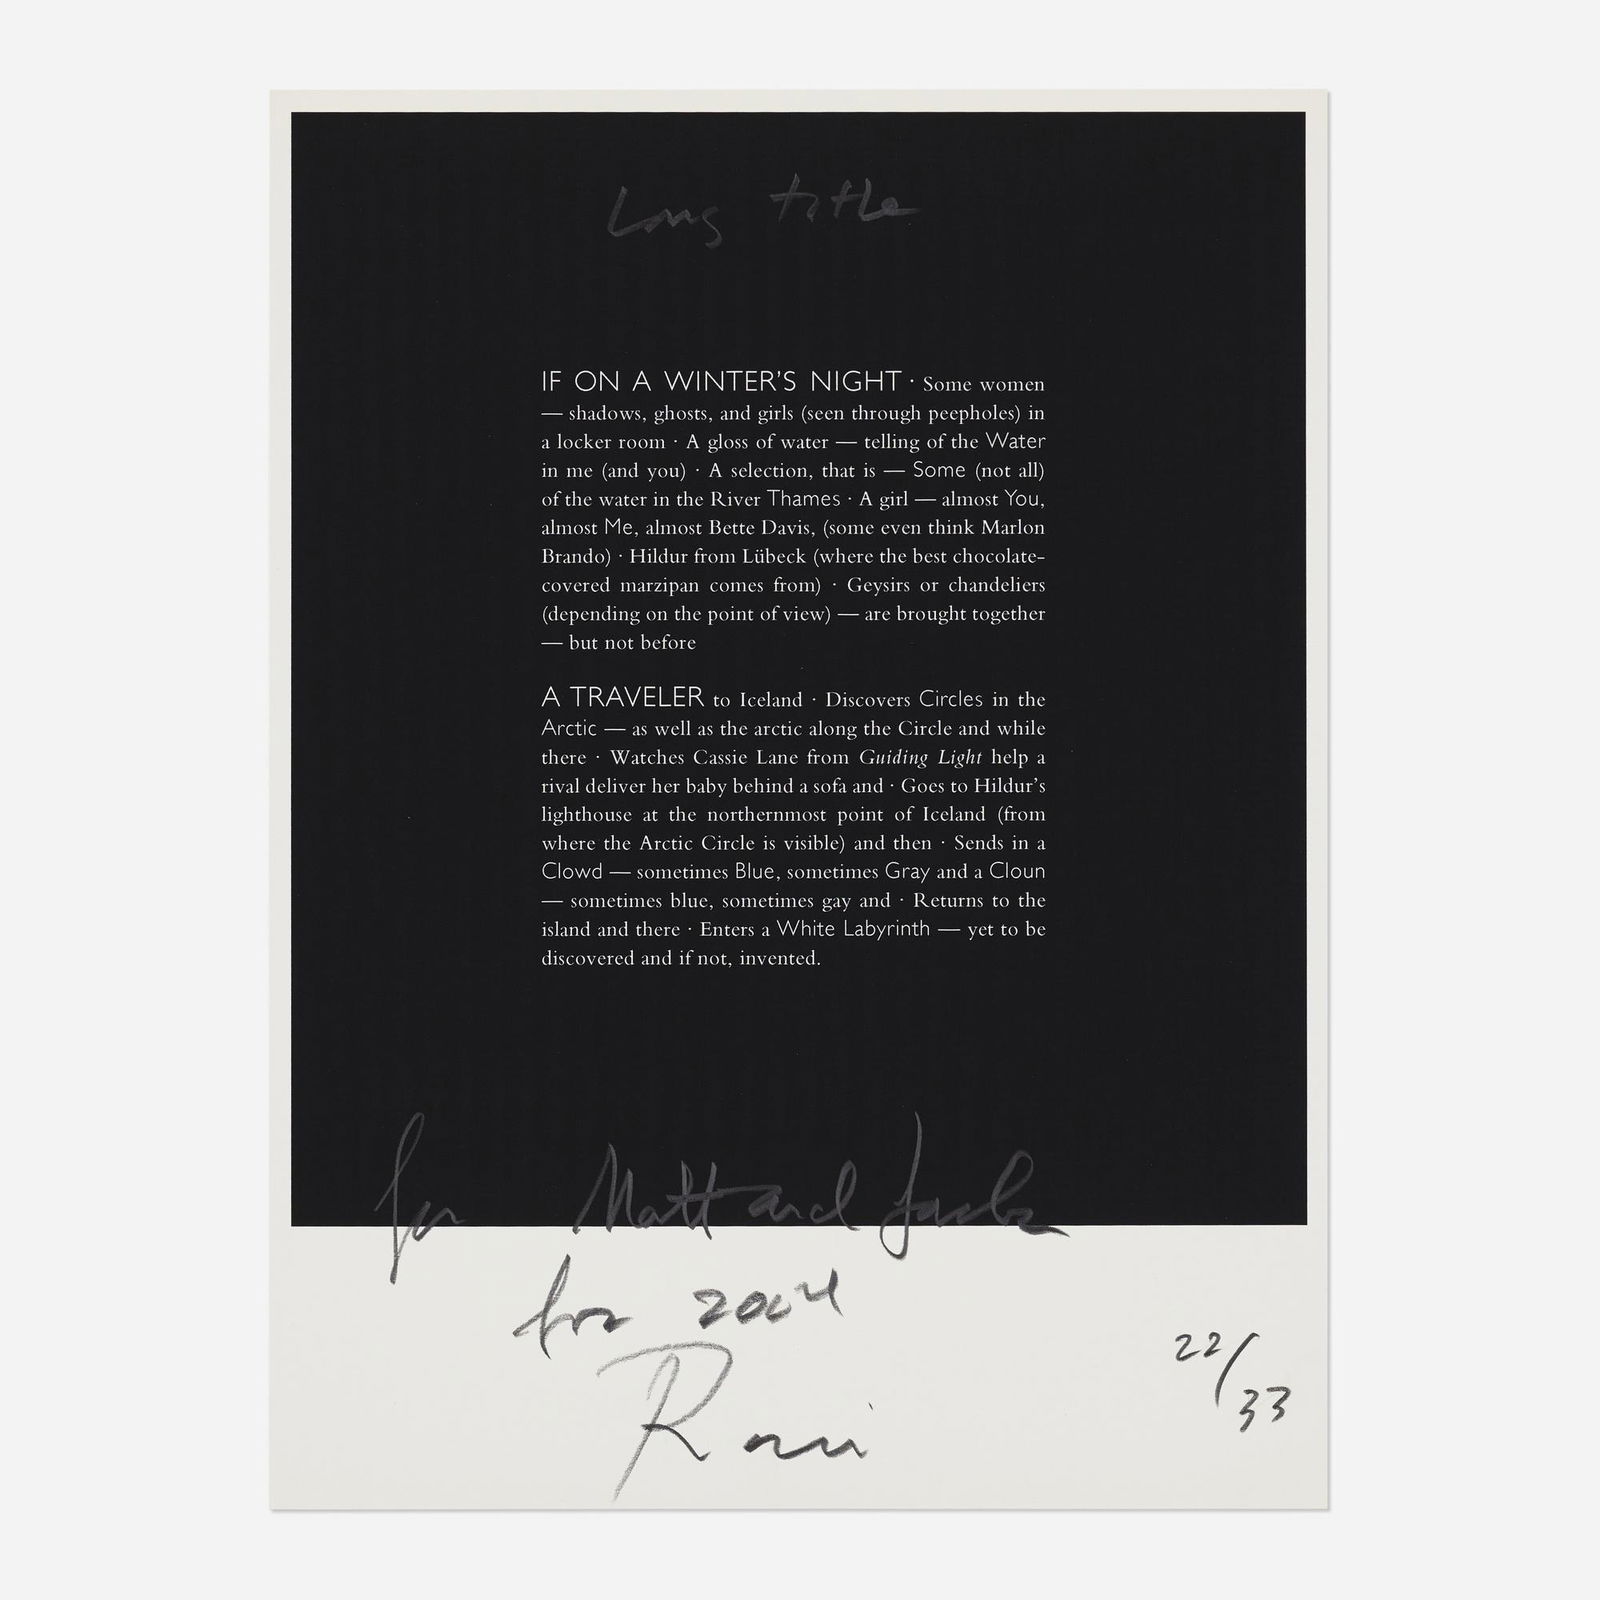 Long title
IF ON A WINTER'S NIGHT · Some women
— shadows, ghosts, and girls (seen through peepholes) in
a locker room · A gloss of water — telling of the Water
in me (and you) · A selection, that is — Some (not all)
of the water in the River Thames · A girl — almost You,
almost Me, almost Bette Davis, (some even think Marlon
Brando) · Hildur from Lübeck (where the best chocolate-
covered marzipan comes from) · Geysirs or chandeliers
(depending on the point of view) — are brought together
— but not before
A TRAVELER to Iceland · Discovers Circles in the
Arctic — as well as the arctic along the Circle and while
there · Watches Cassie Lane from Guiding Light help a
rival deliver her baby behind a sofa and · Goes to Hildur's
lighthouse at the northernmost point of Iceland (from
where the Arctic Circle is visible) and then · Sends in a
Clowd — sometimes Blue, sometimes Gray and a Cloun
— sometimes blue, sometimes gay and · Returns to the
island and there · Enters a White Labyrinth — yet to be
discovered and if not, invented.
for Matt and
for 2004
Roni
22/33